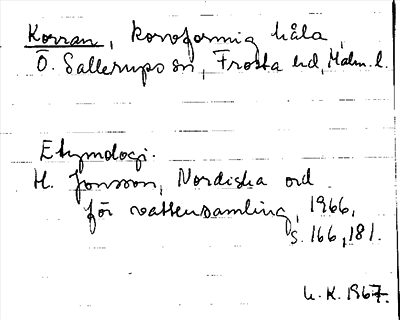 Korran, korvformig håla,
Ö. Sallerups sn, Frosta hd, Malm. l.
Etymologi.
H. Jonsson, Nordiska ord
för vattensamling, 1966,
s. 166, 181.
U. K. 1967.